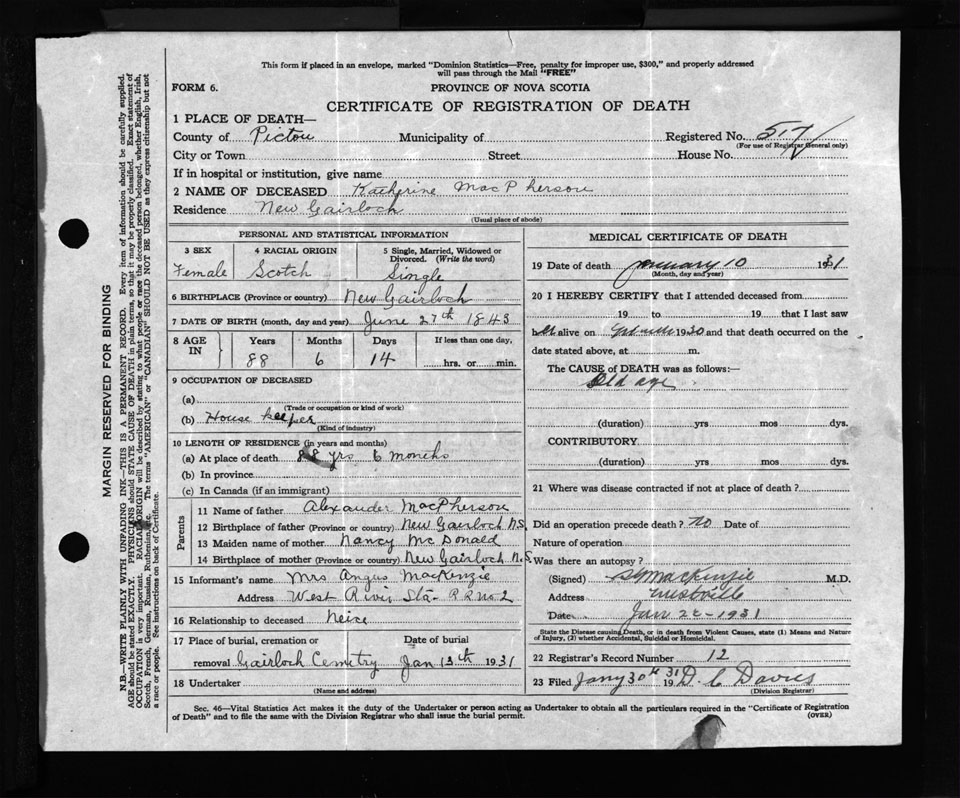 This form if placed in an envelope, marked "Dominion Statistics—Free, penalty for improper use, $300," and properly addressed
will pass through the Mail "FREE"
FORM 6.
PROVINCE OF NOVA SCOTIA
CERTIFICATE OF REGISTRATION OF DEATH
1 PLACE OF DEATH—
County of Pictou Municipality of Registered No. 517
(For use of Registrar General only)
City or Town Street House No.
If in hospital or institution, give name
2 NAME OF DECEASED Katherine MacPherson
Residence New Gairloch
(Usual place of abode)
PERSONAL AND STATISTICAL INFORMATION
3 SEX 4 RACIAL ORIGIN 5 Single, Married, Widowed or
Divorced. (Write the word)
Female Scotch Single
6 BIRTHPLACE (Province or country) New Gairloch
7 DATE OF BIRTH (month, day and year) June 27th 1843
8 AGE IN Years Months Days If less than one day,
88 6 14 hrs. or min.
9 OCCUPATION OF DECEASED
(a)
(Trade or occupation or kind of work)
(b) House keeper
(Kind of industry)
10 LENGTH OF RESIDENCE (in years and months)
(a) At place of death 88 yrs 6 months
(b) In province
(c) In Canada (if an immigrant)
Parents
11 Name of father Alexander MacPherson
12 Birthplace of father (Province or country) New Gairloch N.S.
13 Maiden name of mother Nancy McDonald
14 Birthplace of mother (Province or country) New Gairloch N.S.
15 Informant's name Mrs Angus MacKenzie
Address West River Sta- R R no. 2
16 Relationship to deceased Neice
17 Place of burial, cremation or Date of burial
removal Gairloch Cemetry Jan 13th 1931
18 Undertaker
(Name and address)
MEDICAL CERTIFICATE OF DEATH
19 Date of death January 10 1931
(Month, day and year)
20 I HEREBY CERTIFY that I attended deceased from
19 to 19 that I last saw
h alive on 1930 and that death occurred on the
date stated above, at m.
The CAUSE of DEATH was as follows:—
Old age
(duration) yrs mos dys.
CONTRIBUTORY
(duration) yrs mos dys.
21 Where was disease contracted if not at place of death?
Did an operation precede death? no Date of
Nature of operation
Was there an autopsy?
(Signed) MacKenzie M.D.
Address Westville
Date Jan 1931
State the Disease causing Death, or in death from Violent Causes, state (1) Means and Nature
of Injury, (2) whether Accidental, Suicidal or Homicidal.
22 Registrar's Record Number 12
23 Filed Jany 30th 1931 D. C Davies
(Division Registrar)
Sec. 46—Vital Statistics Act makes it the duty of the Undertaker or person acting as Undertaker to obtain all the particulars required in the "Certificate of Registration
of Death" and to file the same with the Division Registrar who shall issue the burial permit.
(OVER)
MARGIN RESERVED FOR BINDING
N.B.—WRITE PLAINLY WITH UNFADING INK—THIS IS A PERMANENT RECORD. Every item of information should be carefully supplied.
AGE should be stated EXACTLY. PHYSICIANS should STATE CAUSE OF DEATH in plain terms, so that it may be properly classified. Exact statement of
OCCUPATION is very important. RACIAL ORIGIN will be described by stating to what people or race the deceased person belonged, whether English, Irish,
Scotch, French, German, Russian, Ruthenian, etc. The terms "AMERICAN" or "CANADIAN" SHOULD NOT BE USED as they express citizenship but not
a race or people. See instructions on back of Certificate.